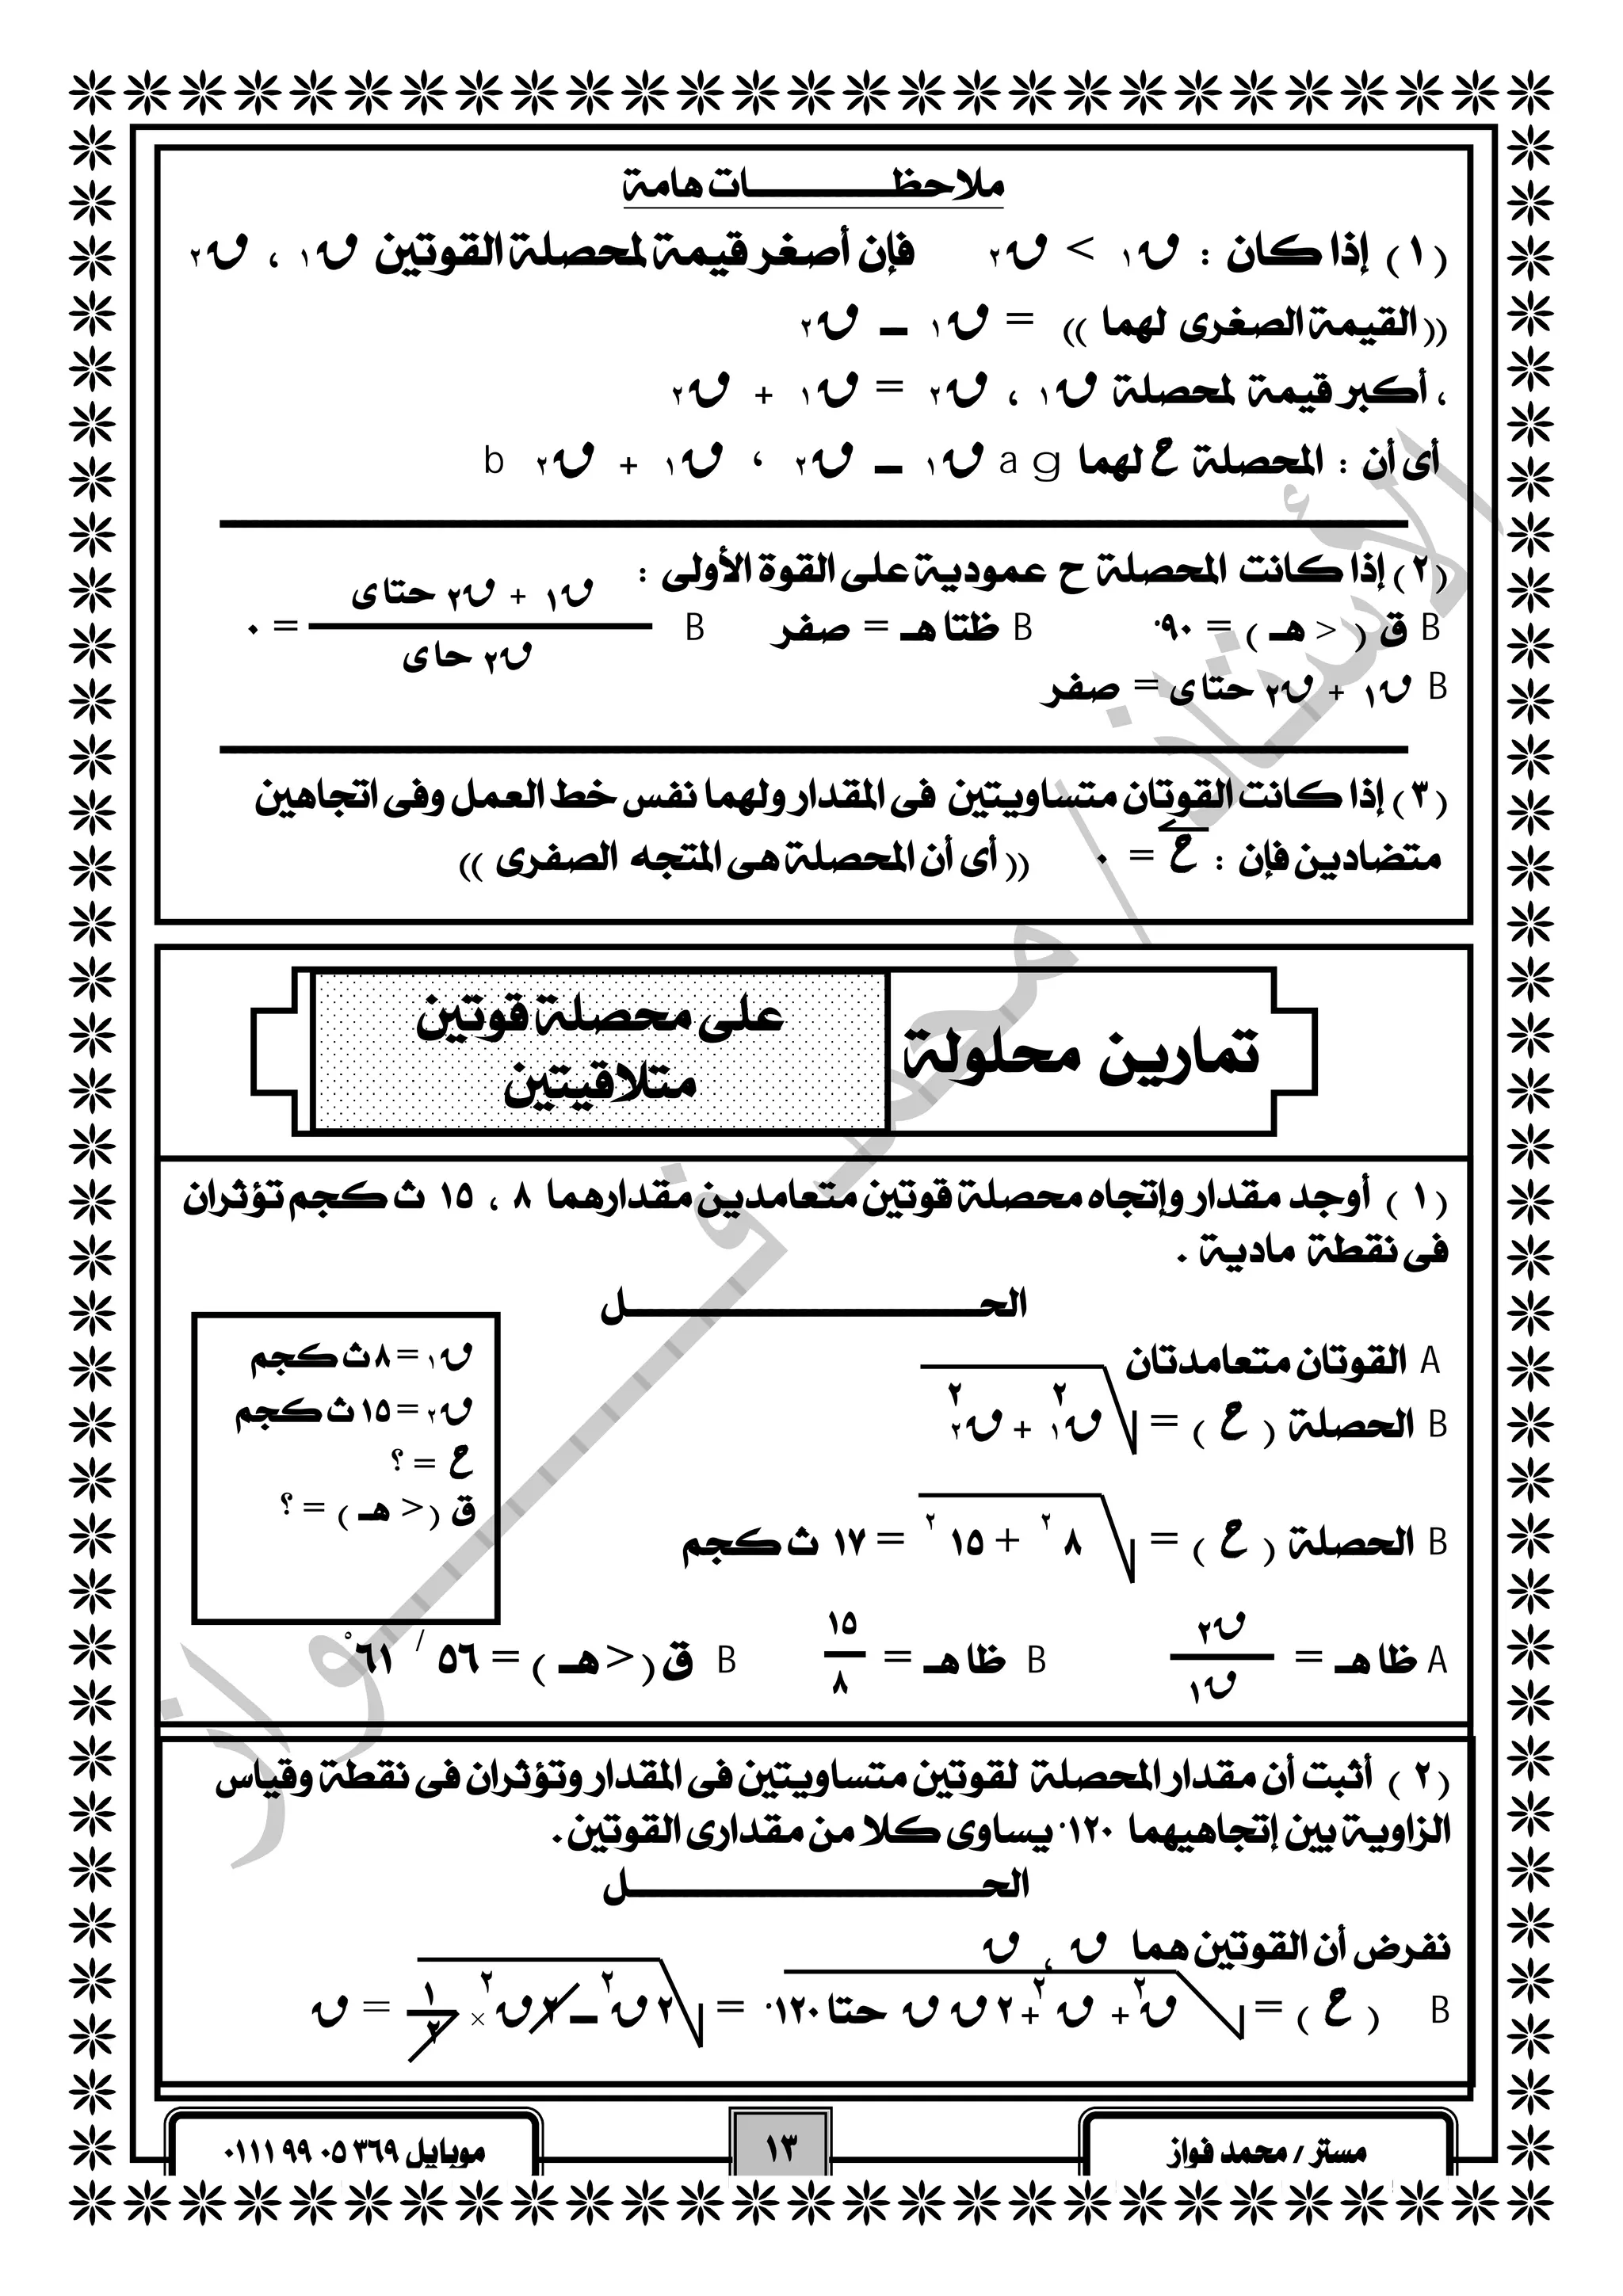 ملاحظـــــــــــات هامة
( ١ ) إذا كان : ق١ > ق٢ فإن أصغر قيمة لمحصلة القوتين ق١ ، ق٢
(( القيمة الصغرى لهما )) = ق١ ــ ق٢
، أكبر قيمة لمحصلة ق١ ، ق٢ = ق١ + ق٢
أى أن : المحصلة ح لهما a g ق١ ــ ق٢ ، ق١ + ق٢ b
( ٢ ) إذا كانت المحصلة ح عمودية على القوة الأولى :
B ق ( > هـ ) = ٩٠° B ظتا هـ = صفر B (ق١ + ق٢ حتا ى) / (ق٢ حا ى) = ٠
B ق١ + ق٢ حتا ى = صفر
( ٣ ) إذا كانت القوتان متساويتين فى المقدار ولهما نفس خط العمل وفى اتجاهين
متضادين فإن : ح = ٠ (( أى أن المحصلة هى المتجه الصفرى ))
تمارين محلولة
على محصلة قوتين
متلاقيتين
( ١ ) أوجد مقدار وإتجاه محصلة قوتين متعامدين مقدارهما ٨ ، ١٥ ث كجم تؤثران
فى نقطة مادية .
الحـــــــــــــــــل
A القوتان متعامدتان
B الحصلة ( ح ) = √ ق١² + ق٢²
B الحصلة ( ح ) = √ ٨² + ١٥² = ١٧ ث كجم
ق١ = ٨ ث كجم
ق٢ = ١٥ ث كجم
ح = ؟
ق ( > هـ ) = ؟
A ظا هـ = ق٢ / ق١ B ظا هـ = ١٥ / ٨ B ق ( > هـ ) = ٥٦ / ٦١°
( ٢ ) أثبت أن مقدار المحصلة لقوتين متساويتين فى المقدار وتؤثران فى نقطة وقياس
الزاوية بين إتجاهيهما ١٢٠° يساوى كلا من مقدارى القوتين .
الحـــــــــــــــــل
نفرض أن القوتين هما ق ، ق
B ( ح ) = √ ق² + ق² + ٢ ق ق حتا ١٢٠° = √ ٢ ق² ــ ٢ ق² × ١ / ٢ = ق
مستر / محمد فواز
١٣
موبايل ٣٦٩ ٠٥ ٩٩ ٠١١١
الأستاذ / محمد فـــــــواز